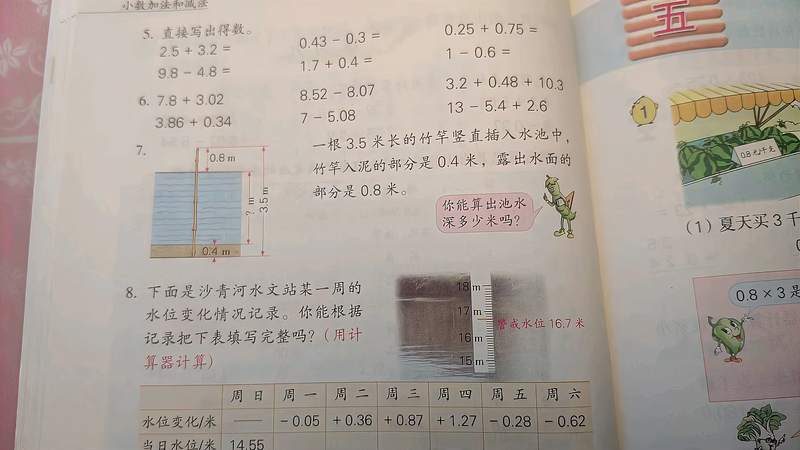 小数加法和减法
5. 直接写出得数。
2.5 + 3.2 =
0.43 − 0.3 =
0.25 + 0.75 =
9.8 − 4.8 =
1.7 + 0.4 =
1 − 0.6 =
6. 7.8 + 3.02
8.52 − 8.07
3.2 + 0.48 + 10.3
3.86 + 0.34
7 − 5.08
13 − 5.4 + 2.6
7.
0.8 m
? m
3.5 m
0.4 m
一根 3.5 米长的竹竿竖直插入水池中，
竹竿入泥的部分是 0.4 米，露出水面的
部分是 0.8 米。
你能算出池水
深多少米吗？
8. 下面是沙青河水文站某一周的
水位变化情况记录。你能根据
记录把下表填写完整吗？（用计
算器计算）
18 m
17 m
16 m
15 m
警戒水位 16.7 米
周日 周一 周二 周三 周四 周五 周六
水位变化/米 —— −0.05 +0.36 +0.87 +1.27 −0.28 −0.62
当日水位/米 14.55
五
1
0.8元/千克
（1）夏天买 3 千
0.8 × 3 是